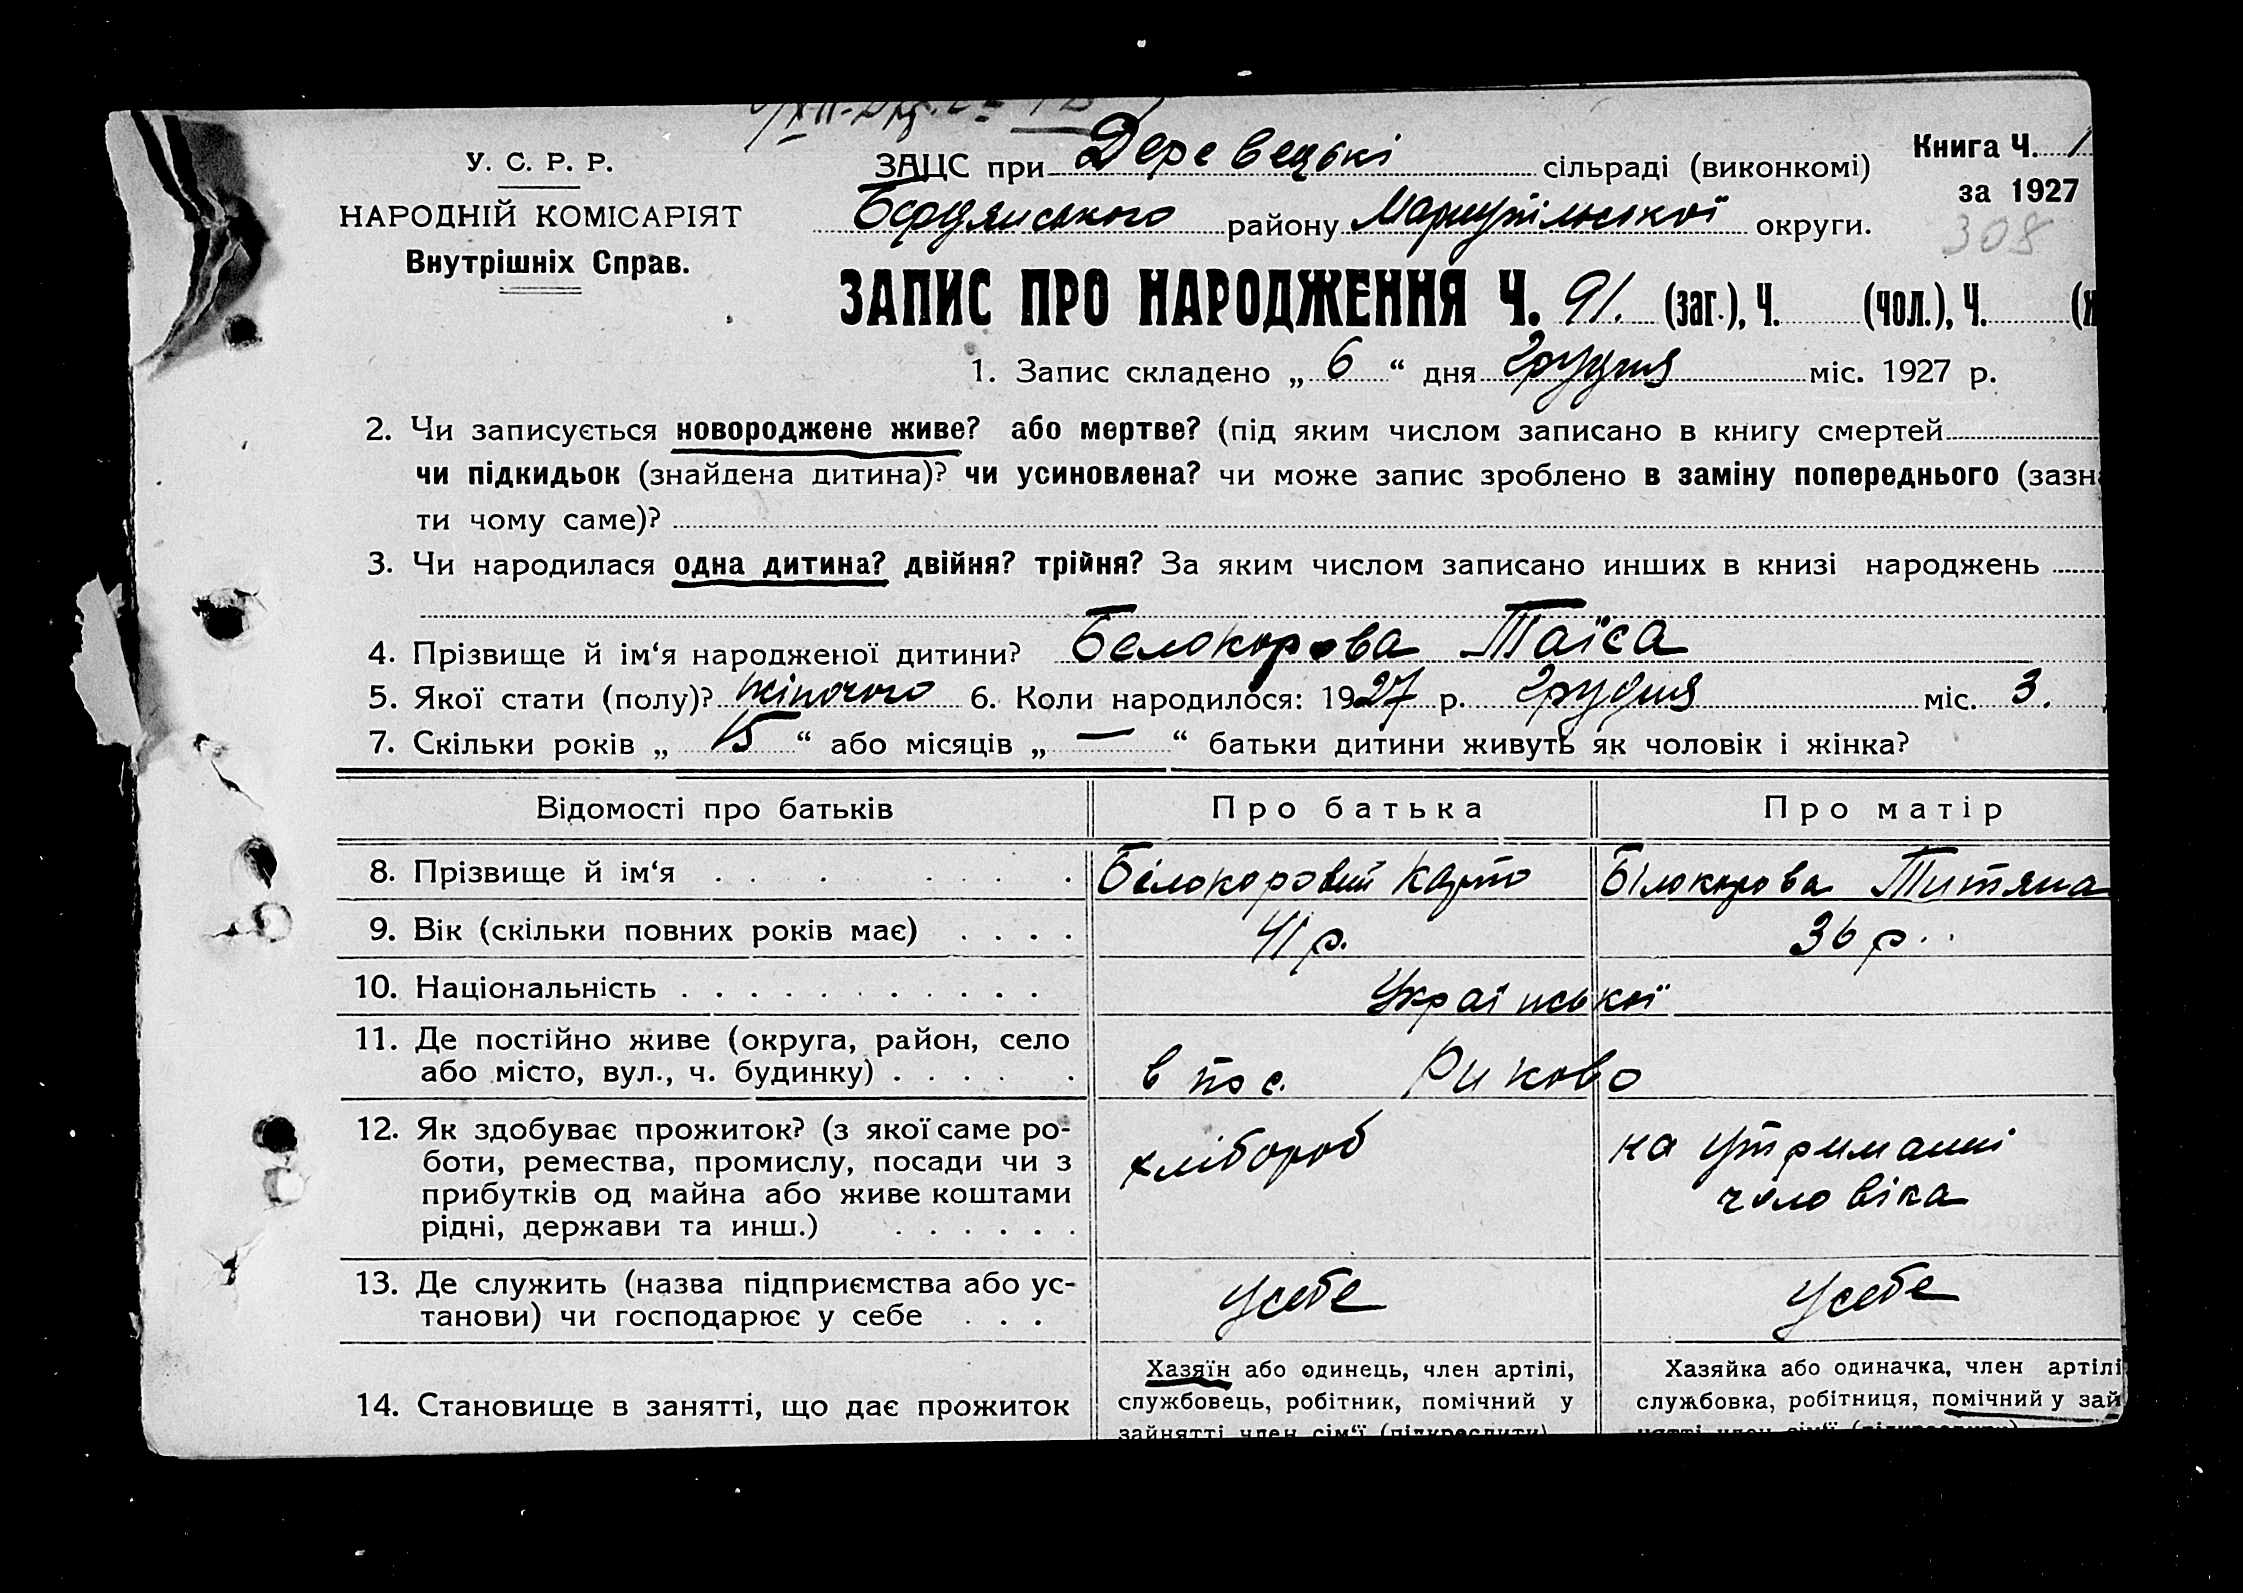 У. С. Р. Р.
НАРОДНІЙ КОМІСАРІЯТ
Внутрішніх Справ.
ЗАЦС при Деревецькі сільраді (виконкомі)
Бердянського району Маріупільської округи.
Книга Ч. 1
за 1927
308
ЗАПИС ПРО НАРОДЖЕННЯ Ч. 91. (заг.), Ч. (чол.), Ч.
1. Запис складено „ 6 “ дня грудня міс. 1927 р.
2. Чи записується новороджене живе? або мертве? (під яким числом записано в книгу смертей
чи підкидьок (знайдена дитина)? чи усиновлена? чи може запис зроблено в заміну попереднього (зазн
ти чому саме)?
3. Чи народилася одна дитина? двійня? трійня? За яким числом записано инших в книзі народжень
4. Прізвище й ім‘я народженої дитини? Белокорова Таїса
5. Якої стати (полу)? жіночого 6. Коли народилося: 1927 р. грудня міс. 3.
7. Скільки років „ 15 “ або місяців „ — “ батьки дитини живуть як чоловік і жінка?
Відомості про батьків Про батька Про матір
8. Прізвище й ім‘я . . . . . . . . Білокоровий Білокорова Титяна
9. Вік (скільки повних років має) . . . . 41 р. 36 р.
10. Національність . . . . . . . . . . . Української
11. Де постійно живе (округа, район, село
або місто, вул., ч. будинку) . . . . . в пос. Риково
12. Як здобуває прожиток? (з якої саме ро-
боти, ремества, промислу, посади чи з
прибутків од майна або живе коштами
рідні, держави та инш.) . . . . . .
хлібороб
на утриманні
чоловіка
13. Де служить (назва підприємства або ус-
танови) чи господарює у себе . . .
усебе усебе
14. Становище в занятті, що дає прожиток
Хазяїн або одинець, член артілі,
службовець, робітник, помічний у
зайнятті член сім‘ї (підкреслити)
Хазяйка або одиначка, член артілі
службовка, робітниця, помічний у зай
нятті член сім‘ї (підкреслити)